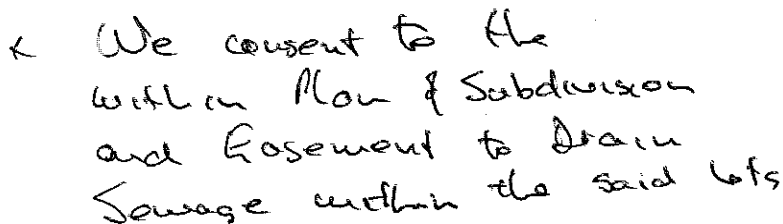 x We consent to the
within Plan of Subdivision
and Easement to Drain
Sewage within the said lots